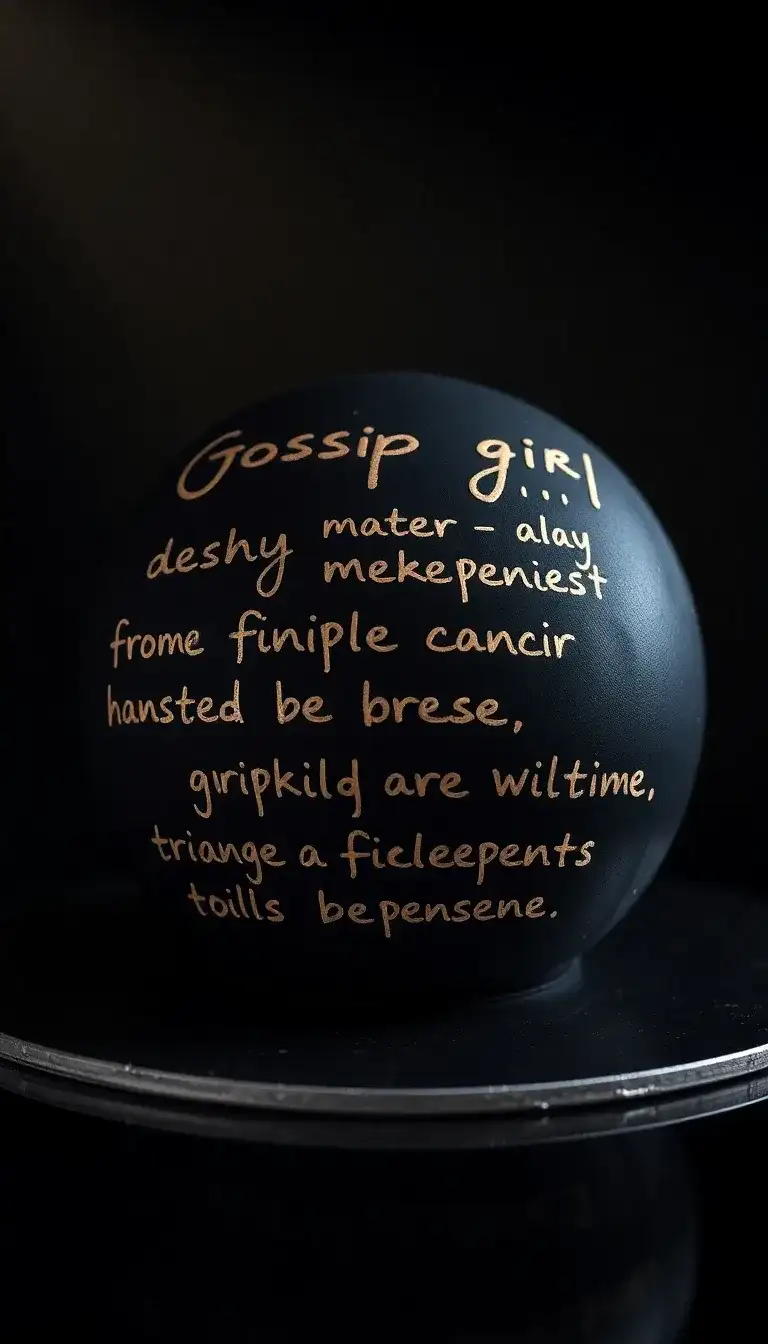 Gossip girl
...
deshy mater - alay
mekepeniest
frome finiple cancir
hansted be brese,
gripkild are wiltime,
triange a ficleepents
toills bepensene.